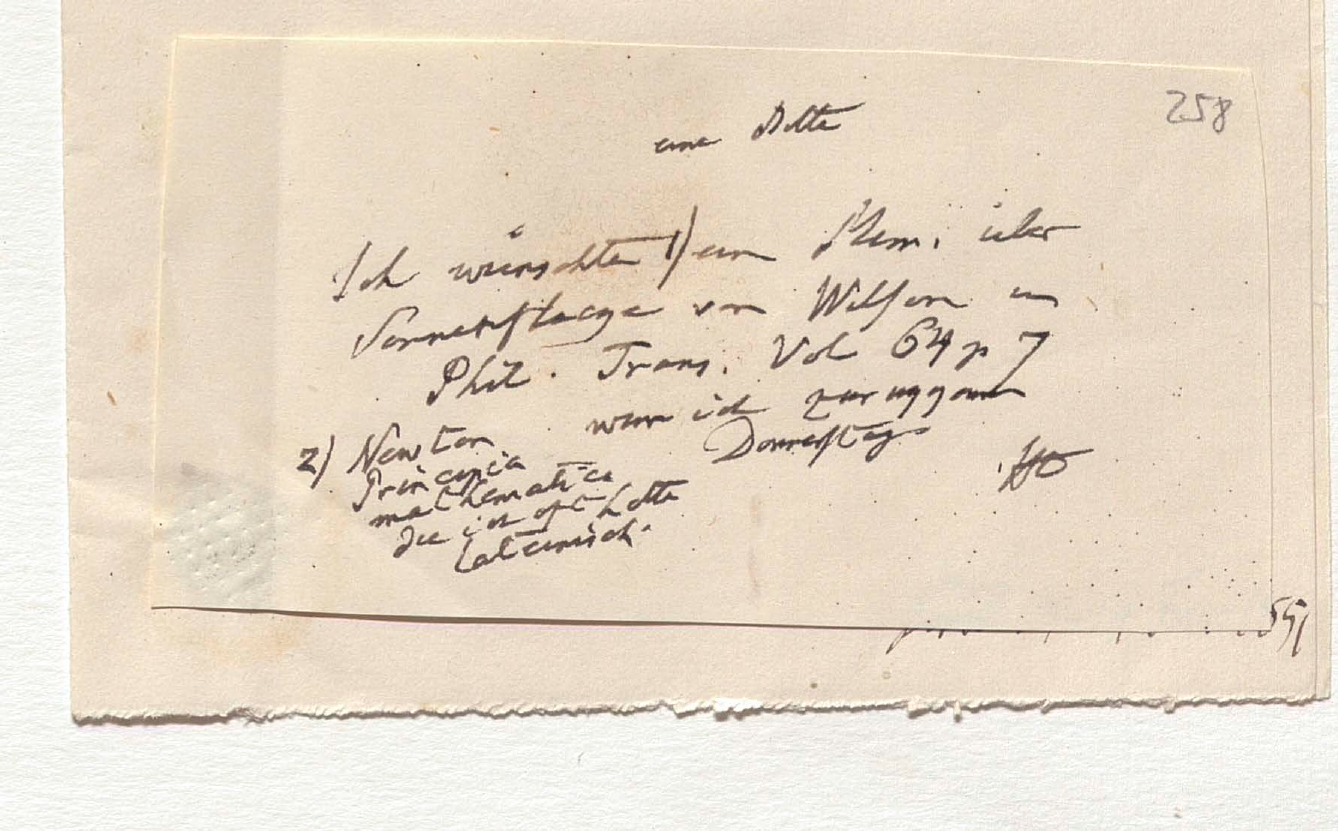 258
eine Bitte
Ich wünschte 1) ein Mem. über
Sonnenflecke von Wilson in
Phil. Trans. Vol 64 p 7
wenn ich
Donnerstag
2) Newton
Principia
mathematica
die ich oft hatte
lateinisch.